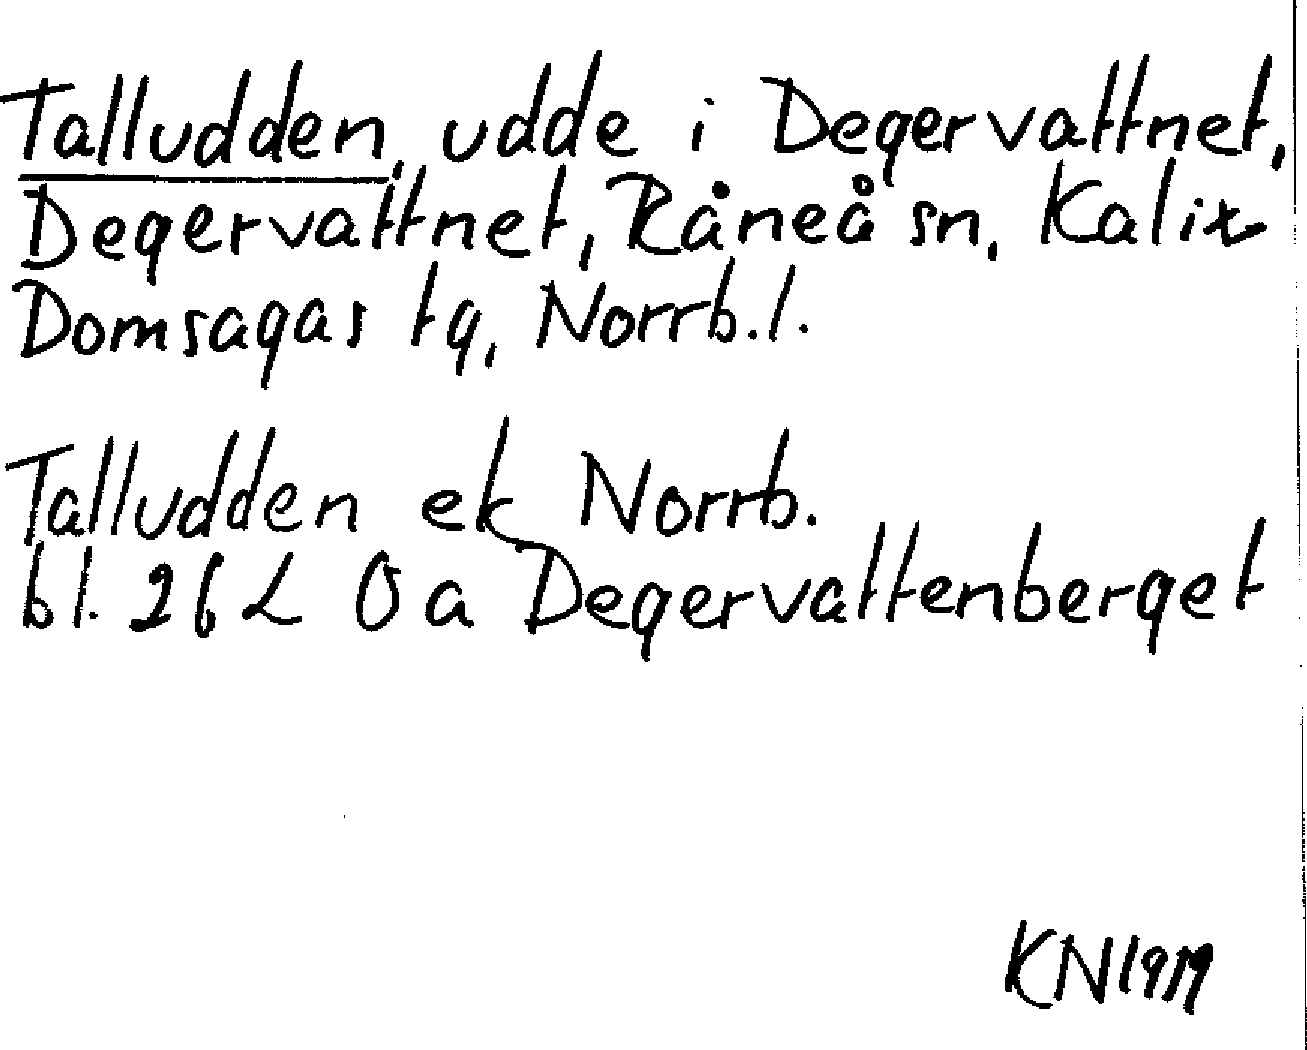 Talludden, udde i Degervattnet,
Degervattnet, Råneå sn, Kalix
Domsagas tg, Norrb.l.
Talludden ek Norrb.
bl. 26 L 0a Degervattenberget
KN